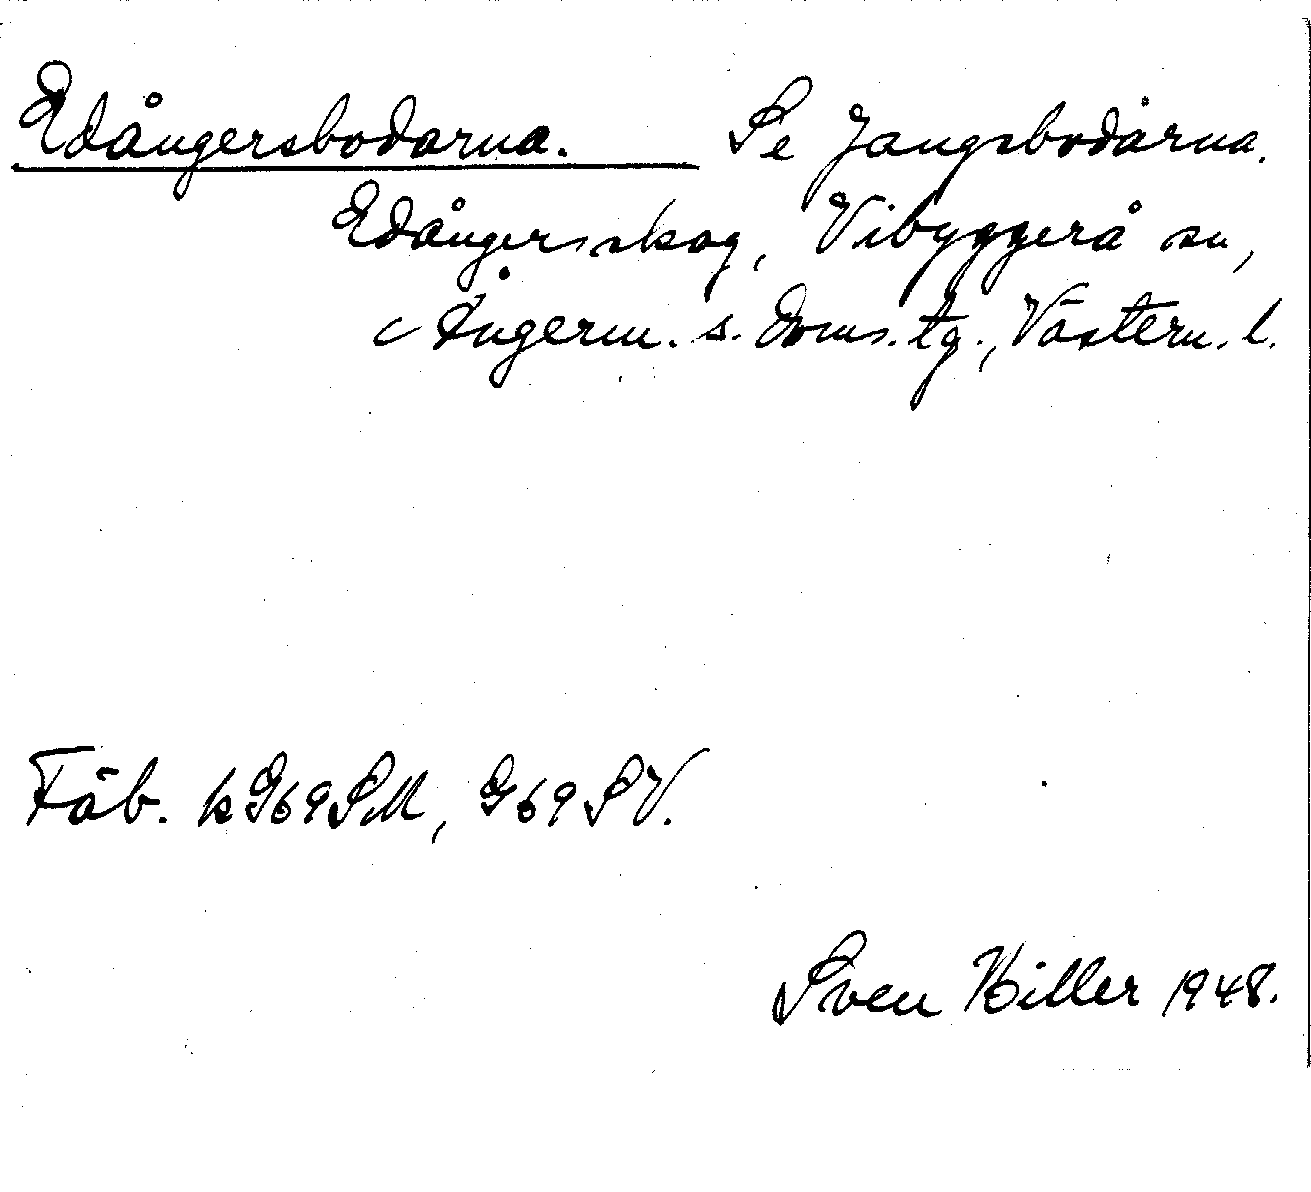 Edångersbodarna. Se Jangsbodarna.
Edångersskog, Vibyggerå sn,
Ångerm. s. doms. tg., Västern. l.
Fäb. k G69SM, G69SV.
Sven Hiller 1948.